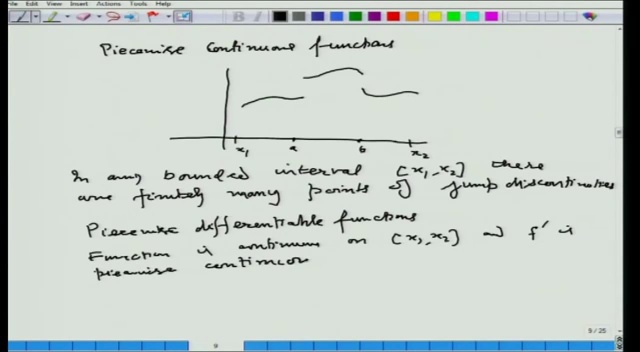 File Edit View Insert Actions Tools Help
Piecewise continuous functions
x1 a b x2
In any bounded interval [x1, x2] there
are finitely many points of jump discontinuities
Piecewise differentiable functions
Function is continuous on [x1, x2] and f' is
piecewise continuous
9/25
9